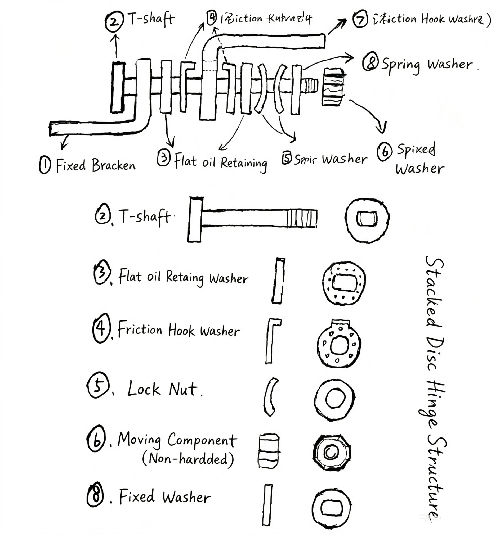 ② T-shaft
④
⑦ Hook Washre)
⑧ Spring Washer.
① Fixed Bracken
③ Flat oil Retaining
⑤ Washer
⑥ Spixed
Washer
②. T-shaft.
③. Flat oil Retaing Washer
④. Friction Hook Washer
⑤. Lock Nut.
⑥. Moving Component
(Non-hardded)
⑧. Fixed Washer
Stacked Disc Hinge Structure.